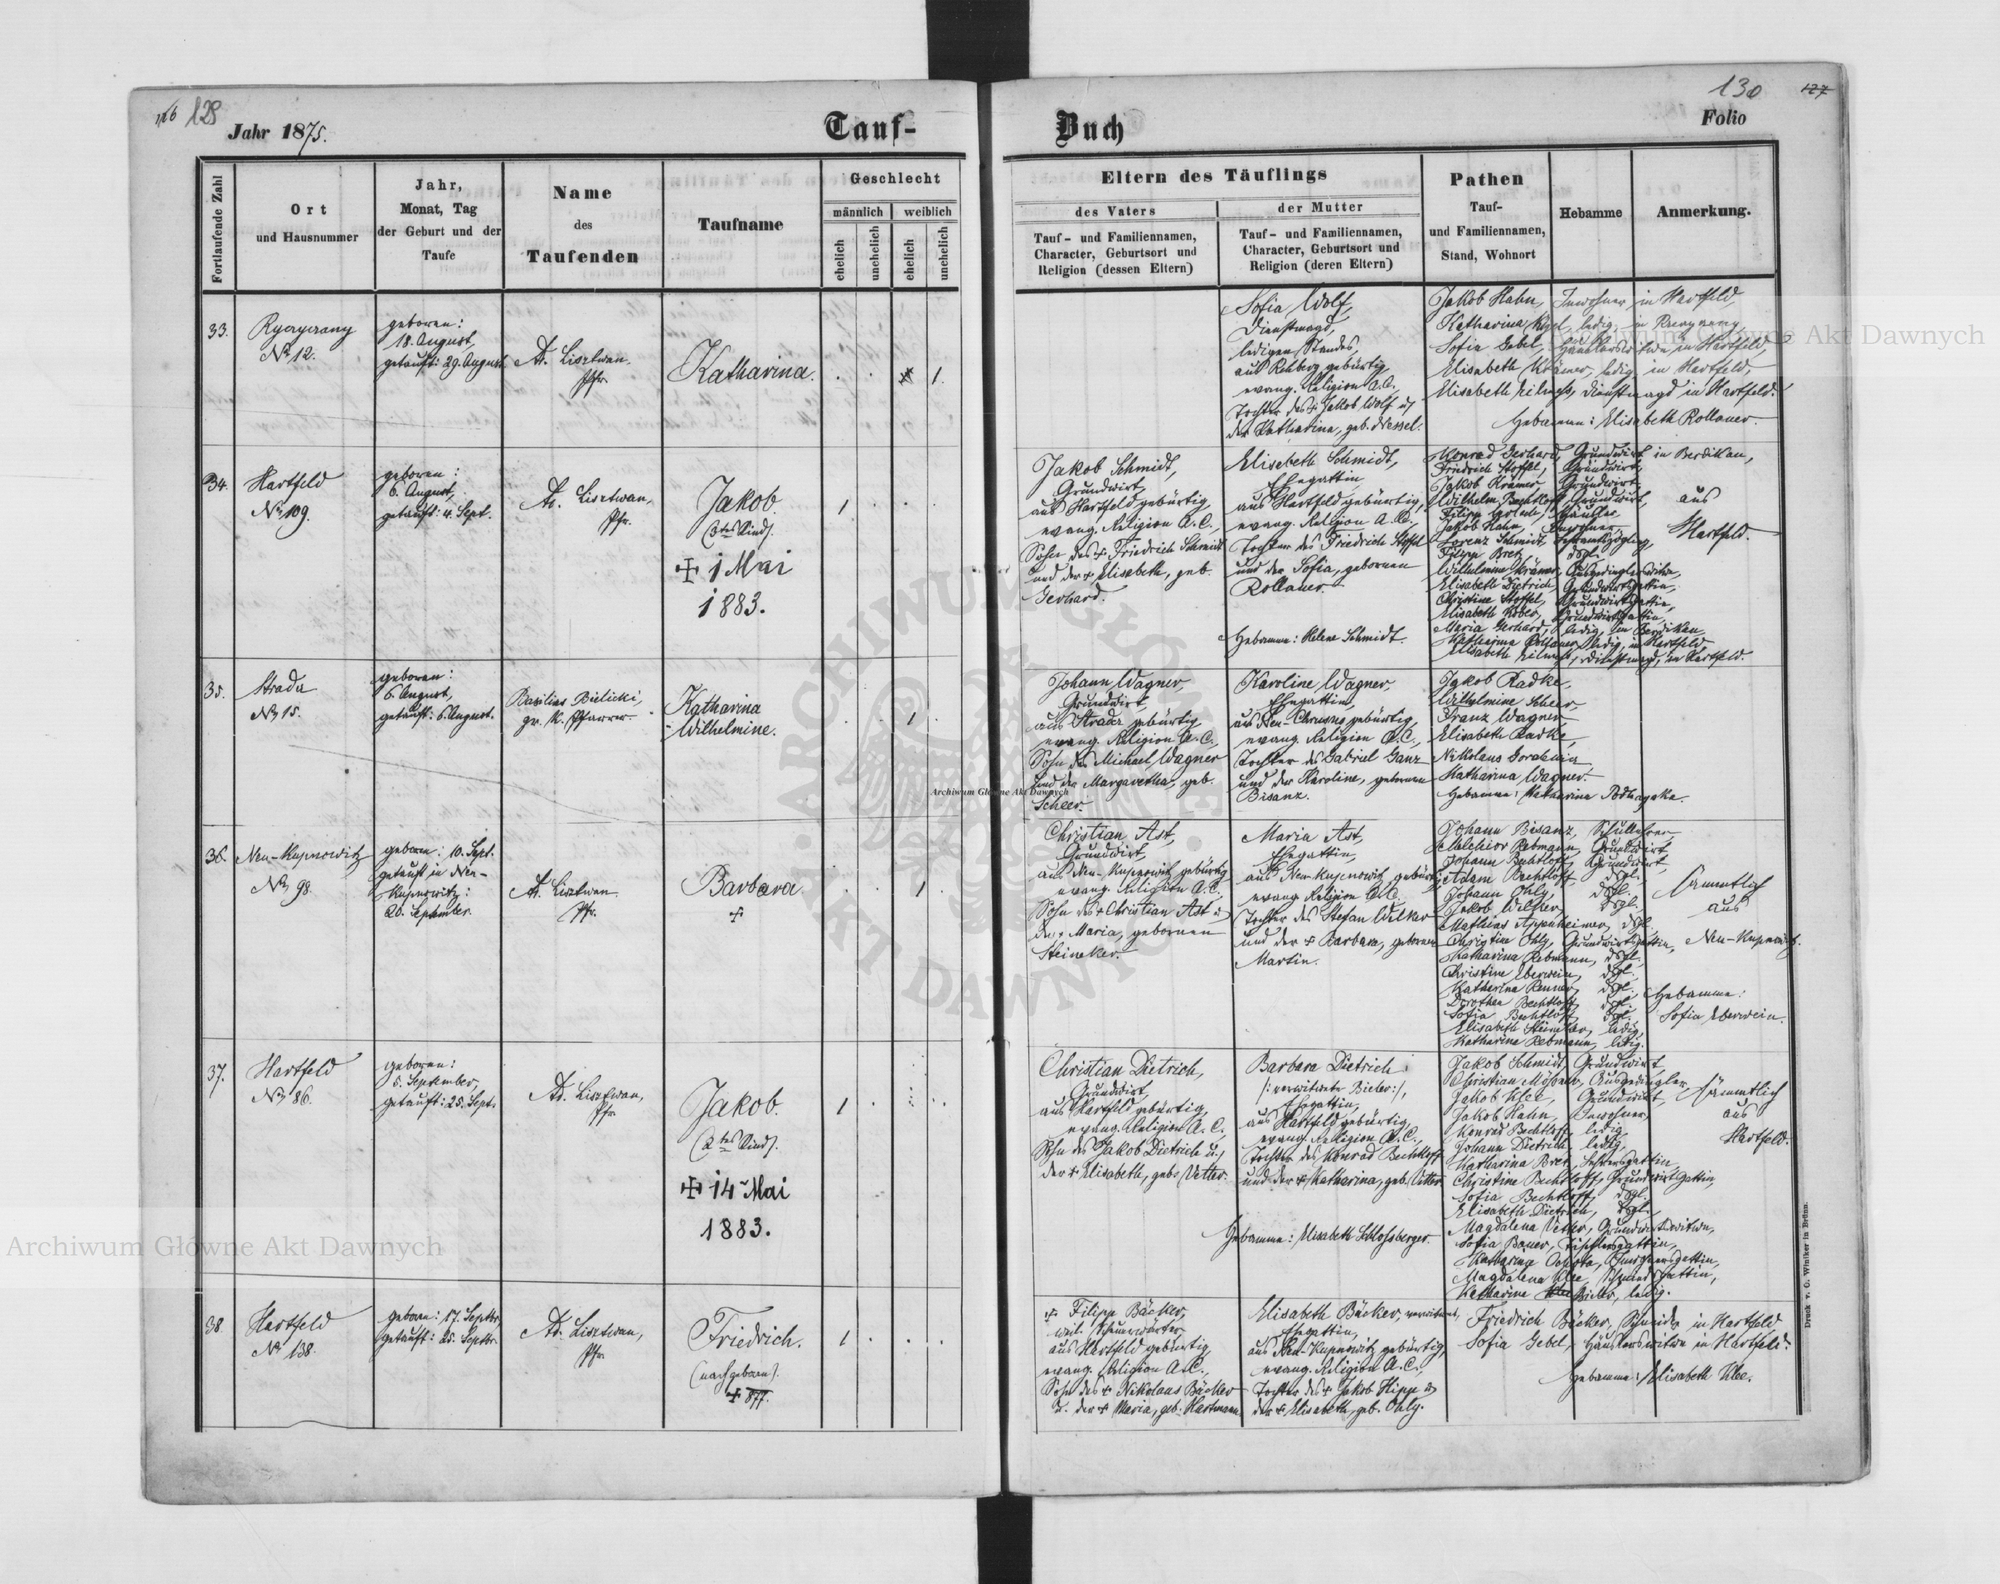 126 128
Jahr 1875.
Tauf-
Buch
130 127
Folio
Fortlaufende Zahl
Ort
und Hausnummer
Jahr,
Monat, Tag
der Geburt und der
Taufe
Name
des
Taufenden
Taufname
Geschlecht
männlich weiblich
ehelich unehelich ehelich unehelich
Eltern des Täuflings
des Vaters
Tauf- und Familiennamen,
Character, Geburtsort und
Religion (dessen Eltern)
der Mutter
Tauf- und Familiennamen,
Character, Geburtsort und
Religion (deren Eltern)
Pathen
Tauf-
und Familiennamen,
Stand, Wohnort
Hebamme
Anmerkung.
33.
Ryczyczany
No 12.
geboren:
18. August,
getauft: 29. August.
Ad. Lisztwan
Pfr.
Katharina.
1.
Sofia Wolf,
Dienstmagd,
ledigen Standes
aus Rehberg gebürtig
evang. Religion A.C.,
Tochter des + Jakob Wolf u.
der Katharina, geb. Wessel.
Jakob Hahn, Inwohner in Hartfeld,
Sofia Gebel, Häuslerswitwe in Hartfeld,
Elisabeth Krämer, ledig in Hartfeld,
Dienstmagd in Hartfeld.
Hebamme: Elisabeth Rollauer.
34.
Hartfeld
No 109.
geboren:
6. August,
getauft: 4. Sept.
Ad. Lisztwan,
Pfr.
Jakob.
(3tes Kind).
+ 1 Mai
1883.
1
Jakob Schmidt,
Grundwirt,
aus Hartfeld gebürtig,
evang. Religion A.C.,
Sohn des + Friedrich Schmidt
und der + Elisabeth, geb.
Gerhard.
Elisabeth Schmidt,
Ehegattin,
aus Hartfeld gebürtig,
evang. Religion A.C.,
Tochter des Friedrich Stoffel
und der Sofia, gebornen
Rollauer.
Hebamme: Helene Schmidt.
Konrad Gerhard, Grundwirt in Berdikau,
Friedrich Stoffel, Grundwirt,
Jakob Krämer, Grundwirt,
Wilhelm Bechtloff, Grundwirt,
Jakob Hahn, Inwohner,
Lorenz Schmidt,
Filipp Bretz, dsgl.
Elisabeth Dietrich, Grundwirtsgattin,
Christine Stoffel, Grundwirtsgattin,
Elisabeth Köber, Grundwirtsgattin,
Maria Gerhard, ledig, in Berdikau,
Katharina Rollauer, ledig, in Hartfeld,
Dienstmagd, in Hartfeld.
aus
Hartfeld.
35.
Strada
No 15.
geboren:
6 August,
getauft: 6. August.
Basilius Bielicki,
gr. k. Pfarrer.
Katharina
Wilhelmine.
1
Johann Wagner,
Grundwirt,
aus Strada gebürtig,
evang. Religion A.C.,
Sohn des Michael Wagner
und der Margaretha, geb.
Scheer.
Karoline Wagner,
Ehegattin,
evang. Religion A.C.,
Tochter des Gabriel Ganz
und der Karoline, gebornen
Bisanz.
Jakob Radke,
Wilhelmine Scheer,
Franz Wagner
Elisabeth Radke,
Katharina Wagner.
Hebamme: Katharina Podhayska.
36.
Neu-Kupnowitz
No 98.
geboren: 10. Sept.
getauft in Neu-
Kupnowitz:
20. September.
Ad. Lisztwan
Pfr.
Barbara.
+
1
Christian Ast,
Grundwirt,
aus Neu-Kupnowitz gebürtig
evang. Religion A.C.
Sohn des + Christian Ast u.
der + Maria, gebornen
Steineker.
Maria Ast,
Ehegattin,
aus Neu-Kupnowitz gebürtig,
evang. Religion A.C.
Tochter des Stefan Wilker
und der + Barbara, gebornen
Martin.
Johann Bisanz, Schullehrer,
Melchior Rebmann, Grundwirt,
Johann Bechtloff, Grundwirt,
Adam Bechtloff, dsgl.
Johann Ohly, dsgl.
Jakob Wilker, dsgl.
Mathias Appenheimer, dsgl.
Christine Ohly, Grundwirtsgattin,
Katharina Rebmann, dsgl.
Christine Eberwein, dsgl.
Katharina Renner, dsgl.
Dorothea Bechtloff, dsgl.
Sofia Bechtloff, dsgl.
Elisabeth Steineker, ledig,
Katharina Rebmann, ledig.
sämmtlich
aus
Neu-Kupnowitz.
Hebamme:
Sofia Eberwein.
37.
Hartfeld
No 86.
geboren:
5. September,
getauft: 25. Sept.
Ad. Lisztwan,
Pfr.
Jakob.
(2tes Kind).
+ 14 Mai
1883.
1
Christian Dietrich,
Grundwirt,
aus Hartfeld gebürtig,
evang. Religion A.C.,
Sohn des Jakob Dietrich u.
der + Elisabeth, geb. Vetter.
Barbara Dietrich
/: verwitwete Bieler :/,
Ehegattin,
aus Hartfeld gebürtig,
evang. Religion A.C.,
Tochter des Konrad Bechtloff
und der + Katharina, geb. Vetter.
Hebamme: Elisabeth Schlossberger.
Jakob Schmidt, Grundwirt,
Christian Mössner, Ausgedingler,
Jakob Klee, Grundwirt,
Jakob Hahn, Inwohner,
Konrad Bechtloff, ledig,
Johann Dietrich, ledig,
Katharina Bretz, Lehrersgattin,
Christine Bechtloff, Grundwirtsgattin,
Sofia Bechtloff, dsgl.
Elisabeth Dietrich, dsgl.
Magdalena Vetter, Grundwirtswitwe,
Sofia Bauer, Tischlersgattin,
Magdalena Klee, Schmidsgattin,
Katharine Bieler, ledig.
sämmtlich
aus
Hartfeld.
38.
Hartfeld
No 138.
geboren: 17. Septbr,
getauft: 25. Septbr.
Ad. Lisztwan,
Pfr.
Friedrich.
(nachgeboren).
+ 877.
1
+ Filipp Bäcker,
aus Hartfeld gebürtig
evang. Religion A.C.,
Sohn des + Nikolaus Bäcker
u. der + Maria, geb. Hartmann.
Elisabeth Bäcker, verwitwet,
Ehegattin,
aus Neu-Kupnowitz gebürtig,
evang. Religion A.C.,
Tochter des + Jakob Hipp u.
der + Elisabeth, geb. Ohly.
Friedrich Bäcker, Schneider in Hartfeld
Sofia Gebel, Häuslerswitwe in Hartfeld.
Hebamme: Elisabeth Klee.
Druck v. G. Winiker in Brünn.
Archiwum Główne Akt Dawnych
Archiwum Główne Akt Dawnych
Archiwum Główne Akt Dawnych
ARCHIWUM GŁÓWNE AKT DAWNYCH